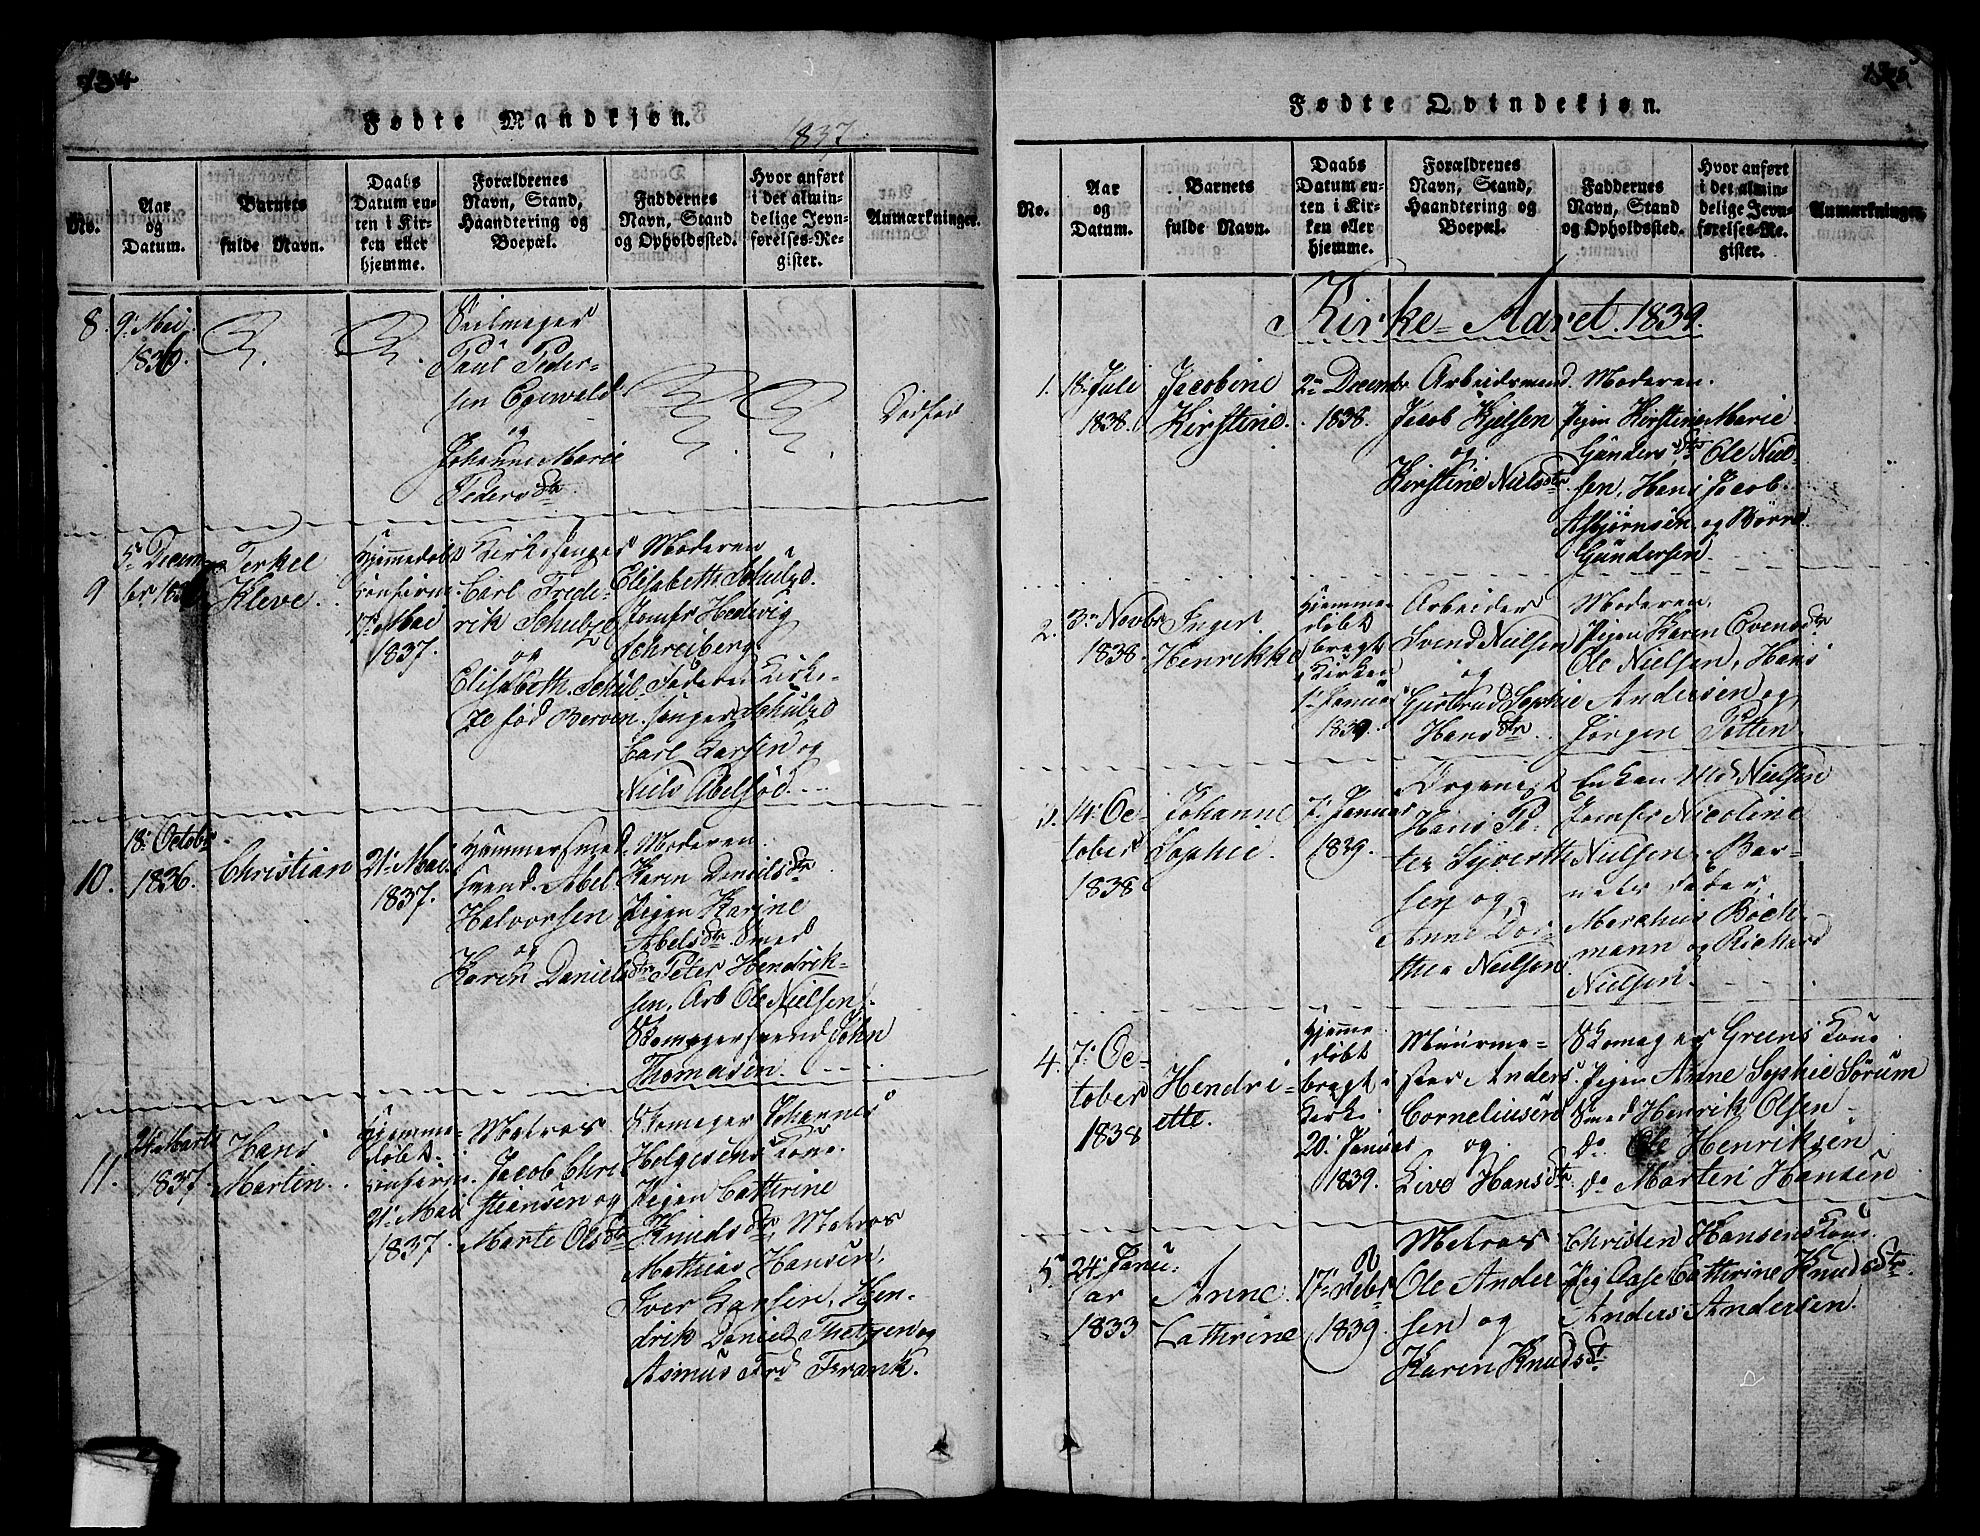 134
Fødte Mandkjøn.
1837.
No.
Aar
og
Datum.
Barnets
fulde Navn.
Daabs
Datum en-
ten i Kir-
ken eller
hjemme.
Forældrenes
Navn, Stand,
Haandtering og
Boepæl.
Faddernes
Navn, Stand
og Opholdssted.
Hvor anført
i det almin-
delige Jevn-
førelses-Re-
gister.
Anmærkninger.
8.
9. Mai
Seilmager
Paul Peder-
sen Egewald
og
Johanne Marie
Pedersdtr.
Dødfød
9
5. Decem-
Terkel
Kleve.
Hjemmedøbt
confirm.
17. Mai
1837.
Kirkesanger
Carl Frede-
rik Schulze
og
Elisabeth Schul-
ze fød Berven
Moderen
Elisabeth Schulze.
Jomfr Hedwig
Schreiberg.
Faderen Kirke-
sanger Schulze
Carl Larsen og
Niels Abelsød.
10.
18. Octobr
1836.
Christian
21. Mai
1837.
Hammersmed
svend Abel
Halvorsen
og
Karen Danielsdtr
Moderen.
Karen Danielsdtr.
Pigen Karine
Abelsdtr. Smed
Peter Hendrik-
sen, Arb Ole Nielsen,
Skomagersvend John
Thomasen.
11.
21. Marts
1837
Hans
Martin.
Hjemme-
døbt.
confirm.
21. Mai
1837.
Matros
Jacob Chri-
stiansen og
Marte Olsdtr
Skomager Johannes
Helgesens Kone.
Pigen Cathrine
Knudsdtr, Matros
Mathias Hansen,
Iver Larsen, Hen-
drik Daniel Thetzen og
Asmus Frd Frank.
135
Fødte Qvindekjøn.
No.
Aar
og
Datum.
Barnets
fulde Navn.
Daabs
Datum en-
ten i Kir-
ken eller
hjemme.
Forældrenes
Navn, Stand,
Haandtering og
Boepæl.
Faddernes
Navn, Stand
og Opholdssted.
Hvor anført
i det almin-
delige Jevn-
førelses-Re-
gister.
Anmærkninger.
Kirke-Aaret. 1839.
1.
18. Juli
1838.
Jacobine
Kirstine.
2. Decembr
1838.
Arbeidsmand
Jacob Kjelsen
og
Kirstine Nielsdtr
Moderen.
Pigen Kirstine Marie
Gundersdtr Ole Niel-
sen, Hans Jacob
Asbjørnsen og Børre
Gundersen.
2.
3. Novbr
1838.
Inger
Henrikke
Hjemme-
døbt
bragt
i Kirken
1. Januar
1839.
Arbeider
Svend Nielsen
og
Gjertrud Sophie
Hansdtr.
Moderen,
Pigen Karen Evensdtr
Ole Nielsen, Hans
Andersen og
Jørgen Potten
3.
14. Oc-
tober
1838
Johanne
Sophie.
7. Januar
1839.
Organist
Hans Pe-
ter Syverth-
sen og
Anne Dor-
thea Neilsen
Enken Md Nielsen
Jomfr Nicoline
Nielsen. Bar-
nets Fader,
Marchus Böck-
mann og Richard
Nielsen.
4.
7. Oc-
tober
1838
Hendri-
ette.
Hjemme
døbt
bragt i
Kirke
20. Januar
1839.
Muurme-
ster Anders
Corneliusen
og
Live Hansdtr
Skomager Greens Kone
Pigen Anne Sophie Sørum
Smed Henrik Olsen
do Ole Henriksen
do Martin Hansen
5.
24. Janu-
ar
1833
Anne
Cathrine
17. Febr
1839.
Matros
Ole Ander
sen og
Karen Knudsdt.
Christen Hansens Kone.
Pig Aase Cathrine Knudsdtr.
Anders Andersen.